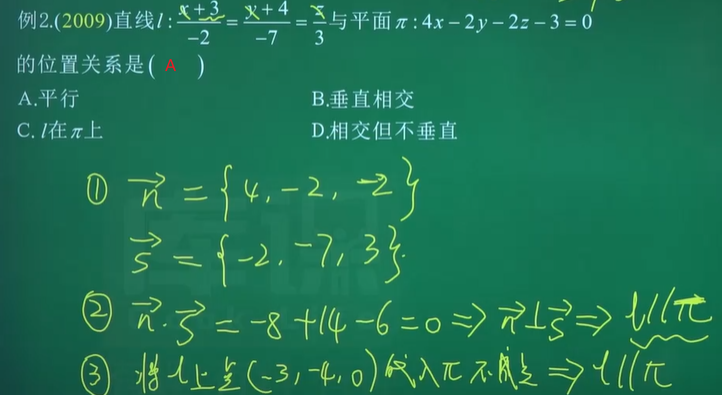 例2.(2009)直线l:(x+3)/(-2)=(y+4)/(-7)=z/3与平面π:4x-2y-2z-3=0
的位置关系是( A )
A.平行 B.垂直相交
C.l在π上 D.相交但不垂直
① n⃗ = {4,-2,-2}
s⃗ = {-2,-7,3}.
② n⃗·s⃗ = -8+14-6=0 ⇒ n⃗⊥s⃗ ⇒ l∥π
③ 将l上点(-3,-4,0)代入π不满足 ⇒ l∥π